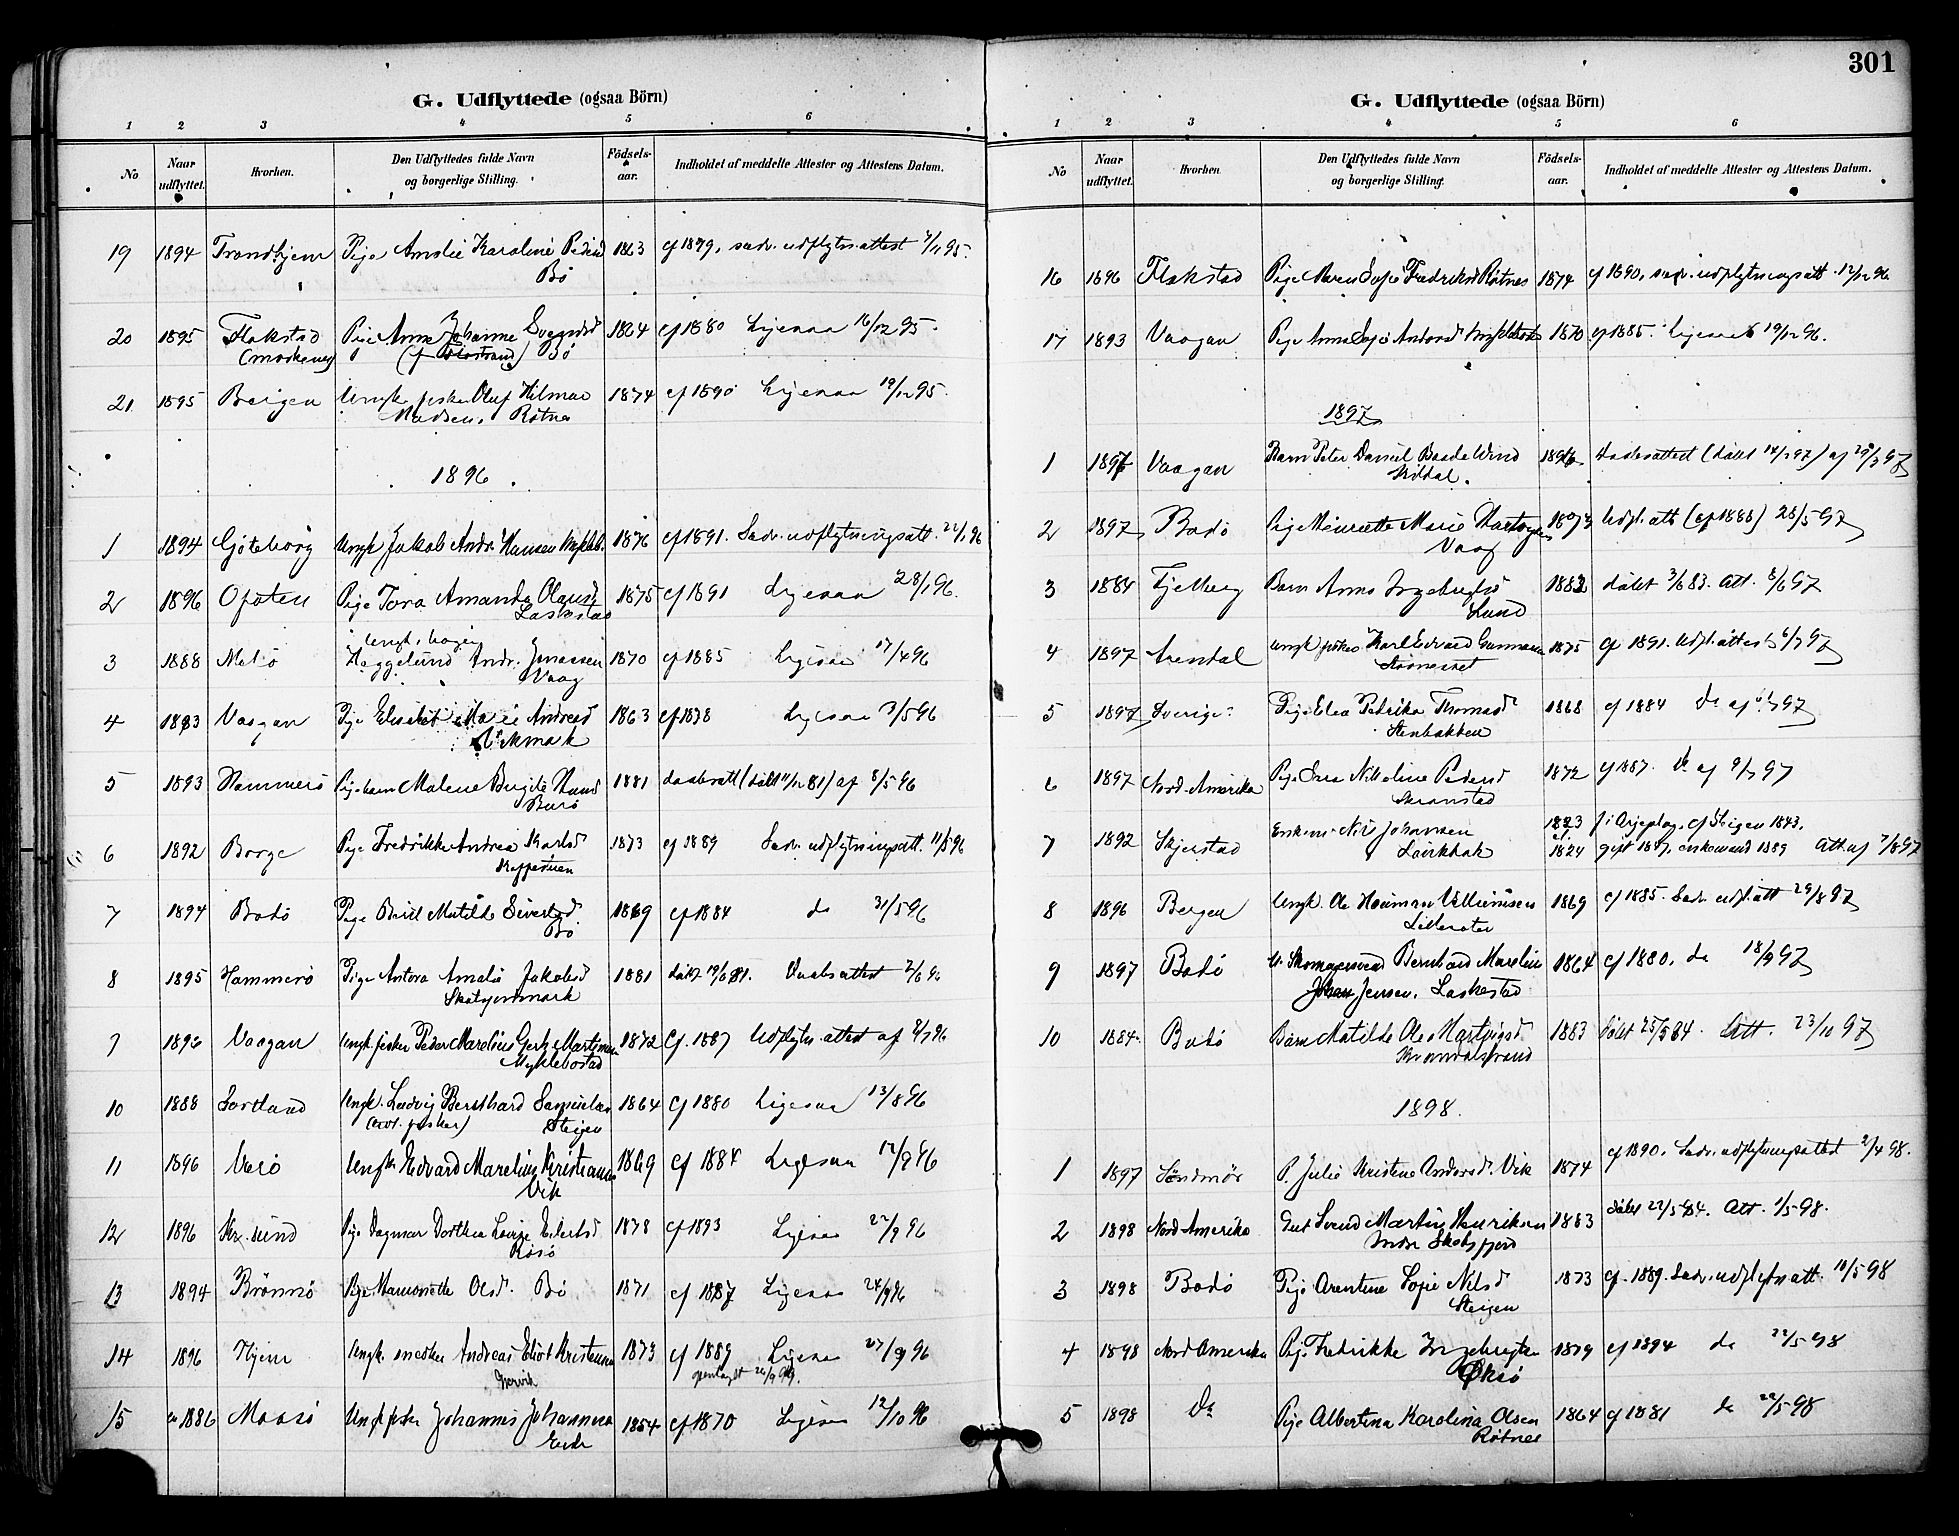 301
G. Udflyttede (ogsaa Börn)
1 2 3 4 5 6
No Naar udflyttet. Hvorhen. Den Udflyttedes fulde Navn og borgerlige Stilling. Födsels-aar. Indholdet af meddelte Attester og Attestens Datum.
19 1894 Trondhjem Pige Amalie Karoline Pedersd 1863 cf 1879, sædv. udflytn.attest 7/11 95.
Bø
20 1895 Flakstad Pige Anna Johanne 1864 cf 1880 Ligesaa 16/12 95.
(Moskenes) Bø
21 1895 Bergen Ungk. fisker Oluf Hilmar 1874 cf 1890 Ligesaa 19/12 95.
Madsen, Røtnes
1896
1 1894 Göteborg Ungk Jakob Andr. Hansen Mykleb. 1876 cf 1891. Sædv. udflytningsatt. 22/1 96
2 1896 Ofoten Pige Tora Amanda Olausd 1875 cf 1891 Ligesaa 28/1 96.
Laskestad
3 1888 Melö Ungk.
Heggelund Andr. Jonassen 1870 cf 1885 Ligesaa 17/4 96
Vaag
4 1883 Vaagan Pige Elisabet Marie Andreasd 1863 cf 1878 Ligesaa 3/5 96
Vikmark
5 1893 Hammerö Pigebarn Malene Birgite 1881 daabsatt (døbt 11/12 81) af 8/5 96
Burö
6 1892 Borge Pige Fredrikke Andrea Karlsd 1873 cf 1889 Sædv. udflytningsatt. 11/5 96
7 1894 Bodö Pige Berit Matilde Sivertsd. 1869 cf 1884 do 31/5 96
Bö
8 1895 Hammerö Pige Antora Amalie Jakobsd 1881 døbt 19/6 81. Daabsattest 2/6 96
9 1896 Vaagan Ungk. fisker Peder Marelius Martinsen 1872 Cf. 1887 Udflytn.attest af 8/7 96
Myklebostad
10 1888 Sortland Ungk. Ludvig Bernthard Samuelsen 1864 Cf 1880 Ligesaa 13/8 96
Steigen
11 1896 Værö Ungk. Edvard Marelius Kristians 1869 Cf 1884 Ligesaa 12/9 96
Vik
12 1896 Kr.sund Pige Dagmar Dorthea Lovise Eilertsd 1878 Cf 1893 Ligesaa 22/9 96
13 1894 Brönnö Pige Olsd. Bö 1871 cf 1887 Ligesaa 24/9 96
14 1896 Hjem Ungk. Andreas Eliot Kristensen 1873 cf 1889 Ligesaa 27/9 96
15 1886 Maasö Ungk fisker Johannes Johannesen 1854 Cf 1870 Ligesaa 12/10 96
G. Udflyttede (ogsaa Börn)
1 2 3 4 5 6
No Naar udflyttet. Hvorhen Den Udflyttedes fulde Navn og borgerlige Stilling. Födsels-aar. Indholdet af meddelte Attester og Attestens Datum.
16 1896 Flakstad Pige Maren Sofie Fredriksd Røtnes 1874 cf 1890, sædv. udflytningsatt. 12/12 96
17 1893 Vaagan Pige Anna Sofie Andersd Myklebostad 1870 cf 1885. Ligesaa 19/12 96.
1897
1 1897 Vaagan Barn Peter Daniel Baade Wind 1896 Daabsattest (døbt 14/2 97) af 29/3 97
2 1897 Bodö Pige Henriette Marie Hartvigsen 1873 Udfl.att (cf 1888) 28/5 97
Vaag
3 1884 Fjelberg Barn Anna Ingebrigtsd 1883 døbt 3/6 83. Att. 8/6 97
Lund
4 1897 Arendal Ungk fisker Karl Edvard 1875 Cf 1891. Udfl.attest 6/7 97
5 1897 Sverige Pige Elea Petrika Thomasd 1868 cf 1884 Do af 97
Stenbakken
6 1897 Nord-Amerika Pige Nikoline Pedersd 1872 cf 1887. Do af 9/7 97
Skranstad
7 1892 Skjerstad Enkem. Nils Johansen 1823 f. i Arjeplog, cf Steigen 1843,
Leirkbak 1824 gift 1847, enkemand 1889 Att. af 7/8 97
8 1896 Bergen Ungk. Ole Villumsen 1869 Cf 1885. Sædv. udfl.att 29/8 97
9 1897 Bodö U. Skomagersvend Bernhard Marelius 1864 cf 1880, do 18/9 97
Johan Jensen, Laskestad
10 1884 Bodö Barn Matilde Olea Hartvigsd 1883 døbt 25/5 84 Att. 23/10 97
Brændalstrand
1898.
1 1897 Söndmör P. Julie Kristine Andersd. Vik 1874 cf 1890. Sædv. udflytningsattest 2/4 98.
2 1898 Nord Amerika Gut Svend Martin Henriksen 1883 døbt 22/5 84. Att. 1/5 98.
Indre Skotsfjord
3 1898 Bodö Pige Arentine Sofie Nilsd 1873 cf. 1889. Sædv. udflytn att. 10/5 98
Steigen
4 1898 Nord Amerika Pige Fredrikke Ingebrigtsen 1879 cf 1894 do 22/5 98
Øksö
5 1898 Do Pige Albertina Karolina Olsen 1864 cf 1881 do 22/5 98
Røtnes